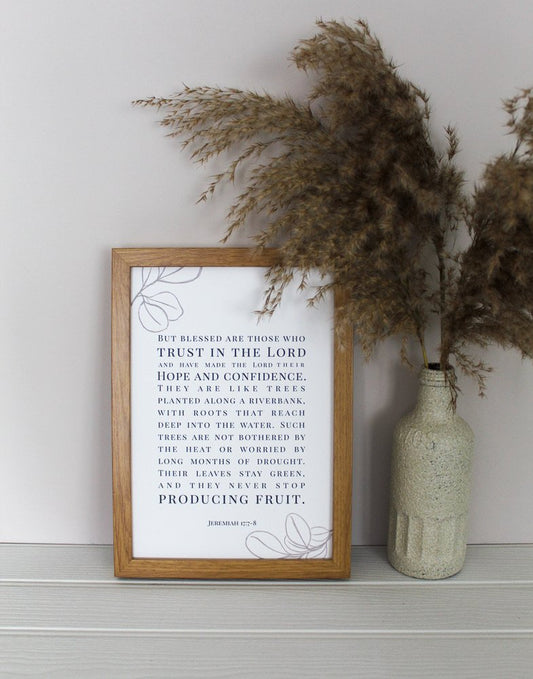 But blessed are those who
trust in the Lord
and have made the Lord their
Hope and confidence.
They are like trees
planted along a riverbank,
with roots that reach
deep into the water. Such
trees are not bothered by
the heat or worried by
long months of drought.
Their leaves stay green,
and they never stop
producing fruit.
Jeremiah 17:7-8